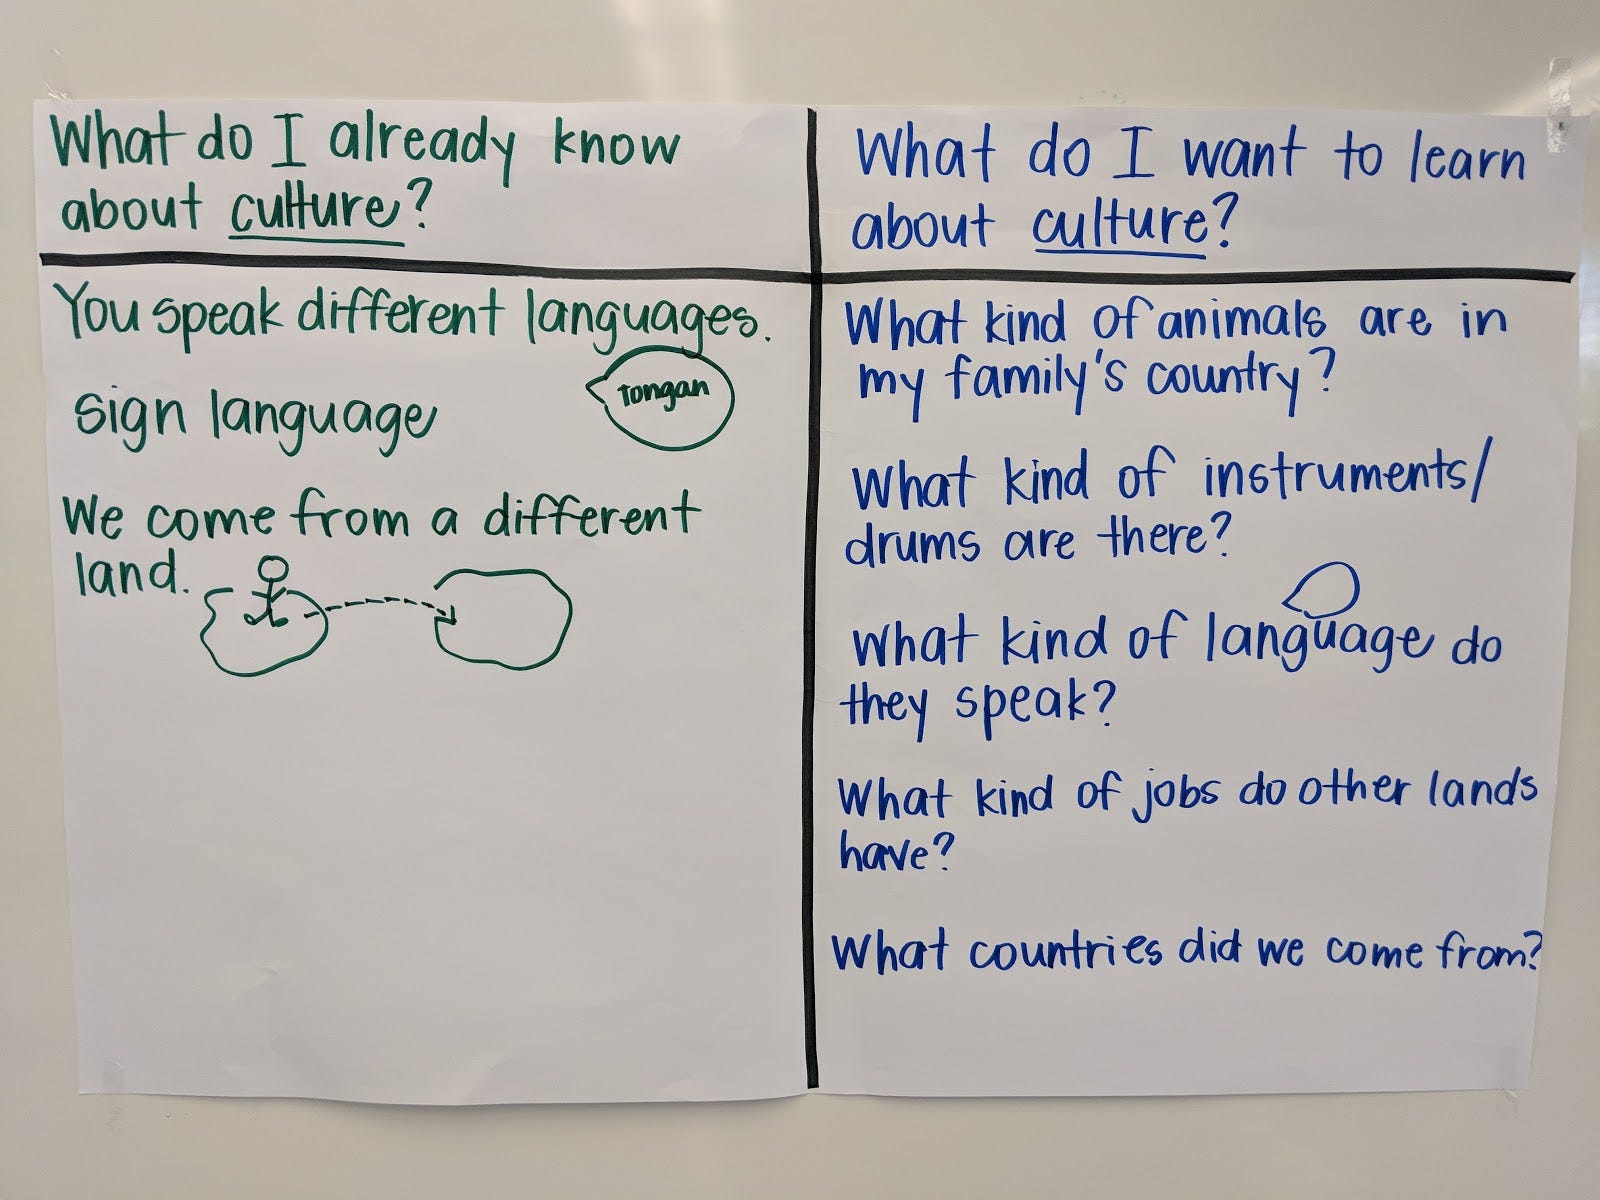 What do I already know
about culture?
You speak different languages.
tongan
sign language
We come from a different
land.
What do I want to learn
about culture?
What kind of animals are in
my family's country?
What kind of instruments/
drums are there?
What kind of language do
they speak?
What kind of jobs do other lands
have?
What countries did we come from?